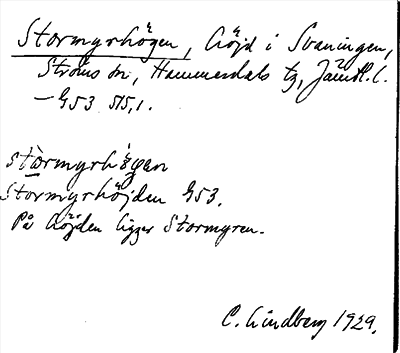 Stormyrhögen, höjd i Svaningen,
Ströms sn, Hammerdals tg, Jämtl. l.
— G53 515,1.
stòrmyrhö̀gen
Stormyrhöjden G53.
På höjden ligger Stormyren.
C. Lindberg 1929.